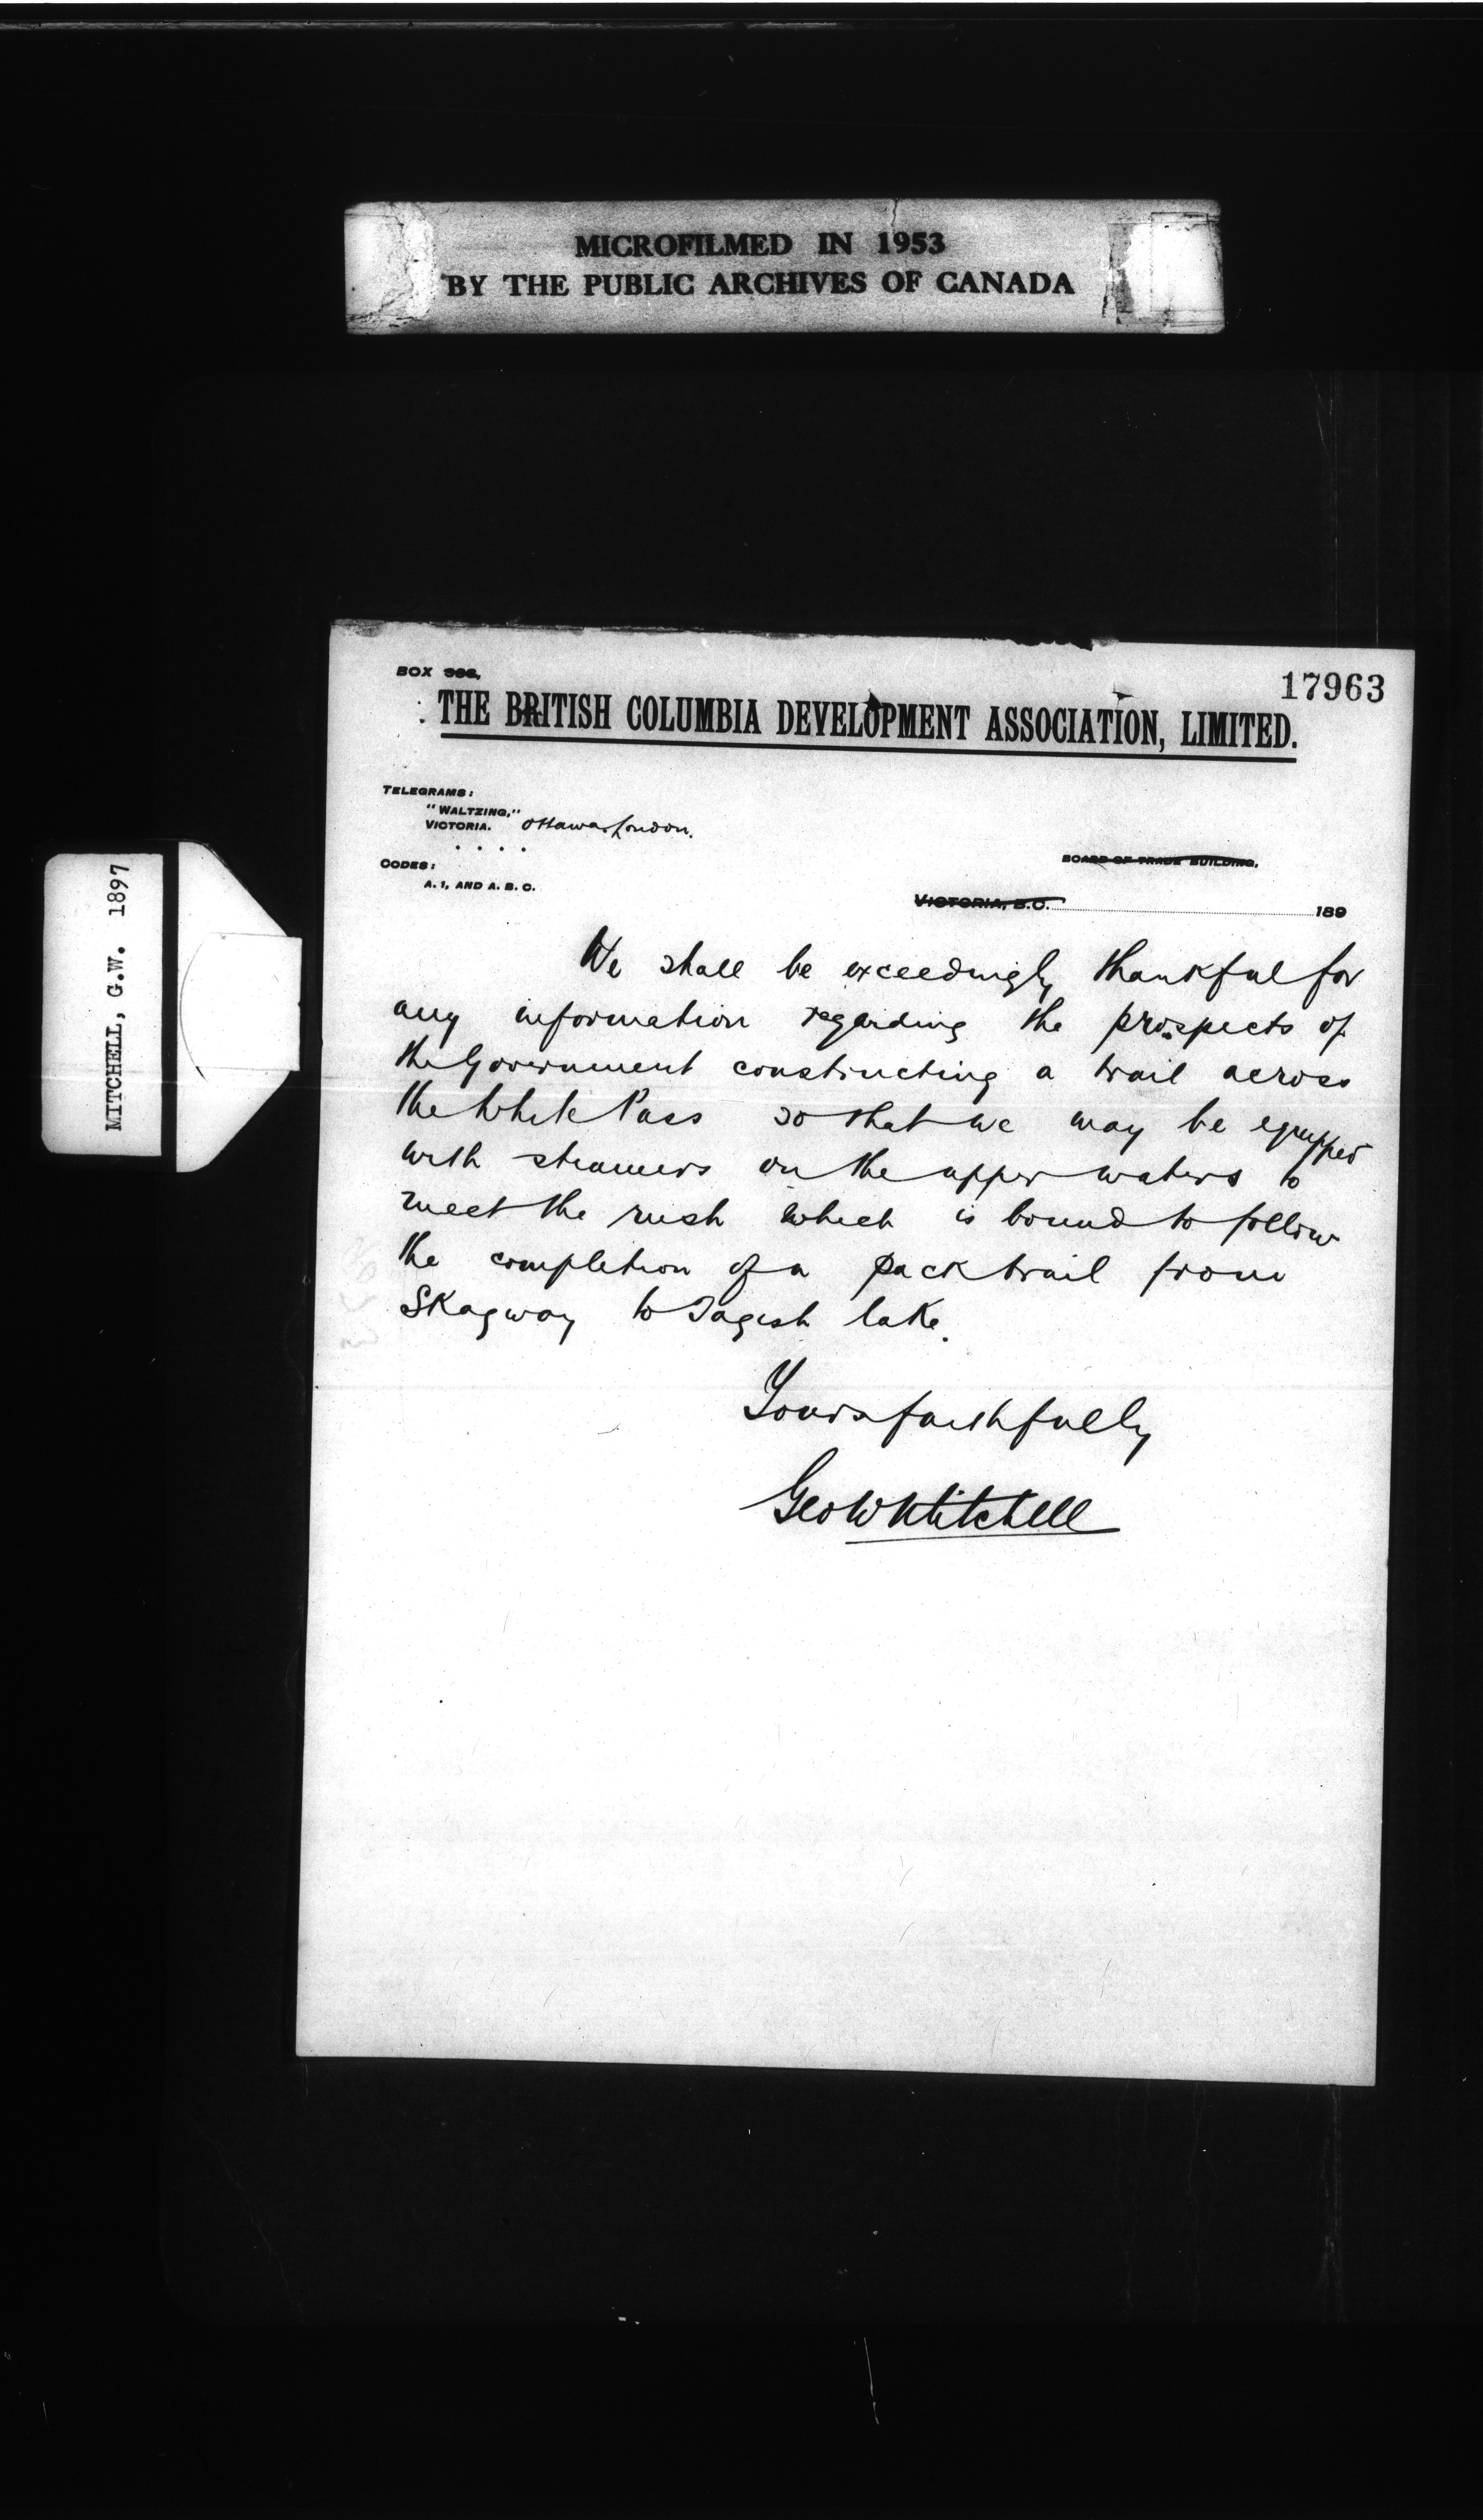 MICROFILMED IN 1953
BY THE PUBLIC ARCHIVES OF CANADA
MITCHELL, G.W. 1897
17963
BOX
THE BRITISH COLUMBIA DEVELOPMENT ASSOCIATION, LIMITED.
TELEGRAMS:
"WALTZING,"
VICTORIA. Ottawa London.
CODES:
A. 1, AND A. B. C.
BOARD OF TRADE BUILDING,
VICTORIA, B.C. 189
We shall be exceedingly thankful for
any information regarding the prospects of
the Government constructing a trail across
the White Pass so that we may be equipped
with steamers on the upper waters to
meet the rush which is bound to follow
the completion of a pack trail from
Skagway to Tagish lake.
Yours faithfully
Geo W Mitchell